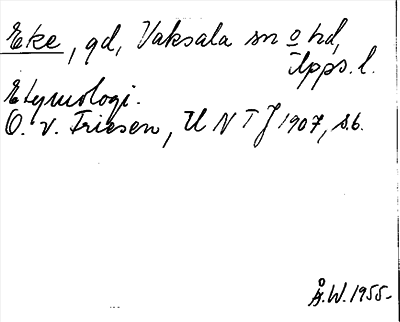 Eke, gd, Vaksala sn o hd,
Upps. l.
Etymologi.
O. v. Friesen, UNTJ 1907, s. 6.
Å.W. 1955.